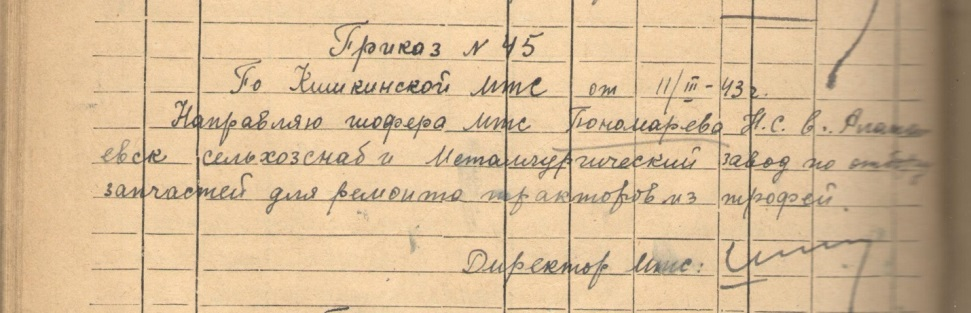 Приказ № 45
По Кишкинской мтс от 11/III-43 г.
Направляю шофера мтс Пономарева Н.С. в. Алапа
евск сельхозснаб и Металлургический завод по
запчастей для ремонта тракторов из трофей.
Директор мтс: